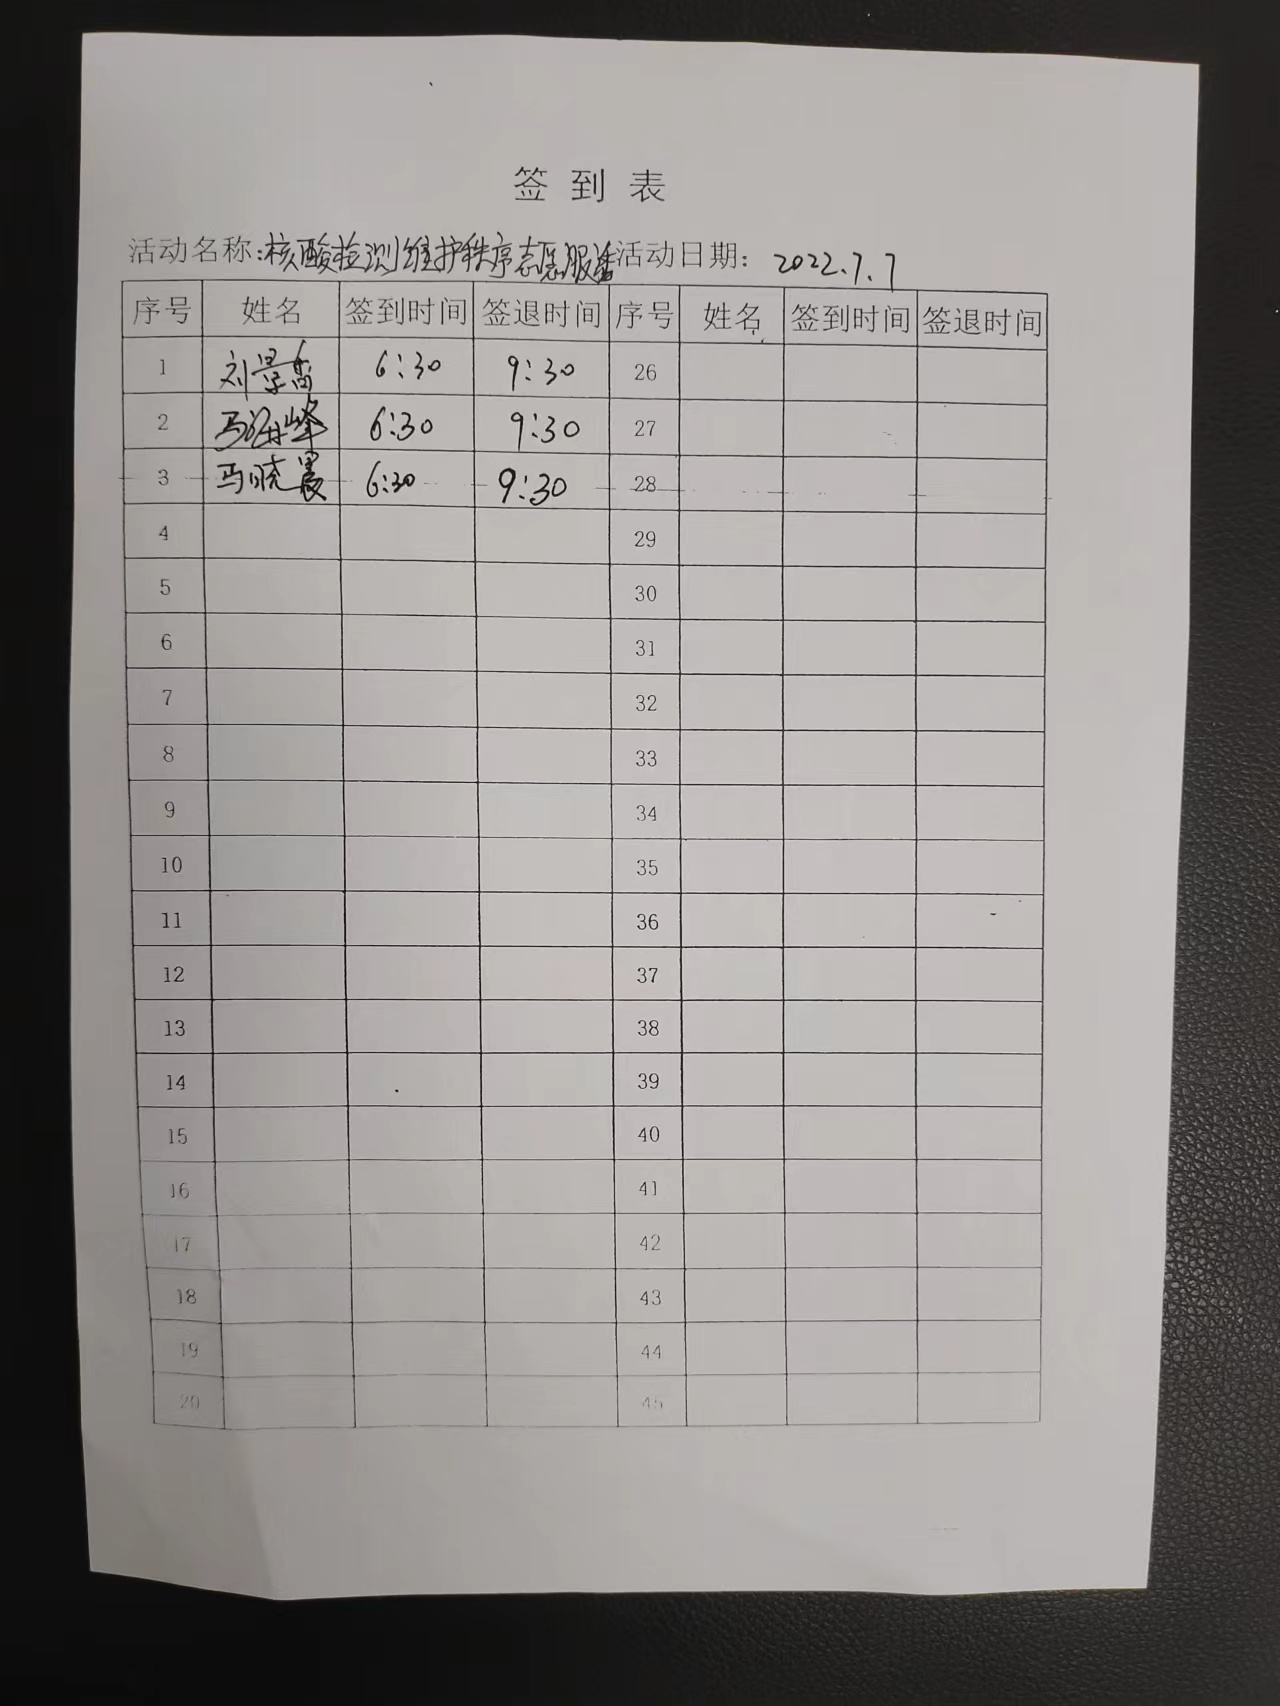 签到表
活动名称:核酸检测维护秩序志愿服务 活动日期: 2022.7.7
序号 姓名 签到时间 签退时间 序号 姓名 签到时间 签退时间
1 刘景 6:30 9:30 26
2 马 峰 6:30 9:30 27
3 马晓晨 6:30 9:30 28
4 29
5 30
6 31
7 32
8 33
9 34
10 35
11 36
12 37
13 38
14 39
15 40
16 41
17 42
18 43
19 44
20 45